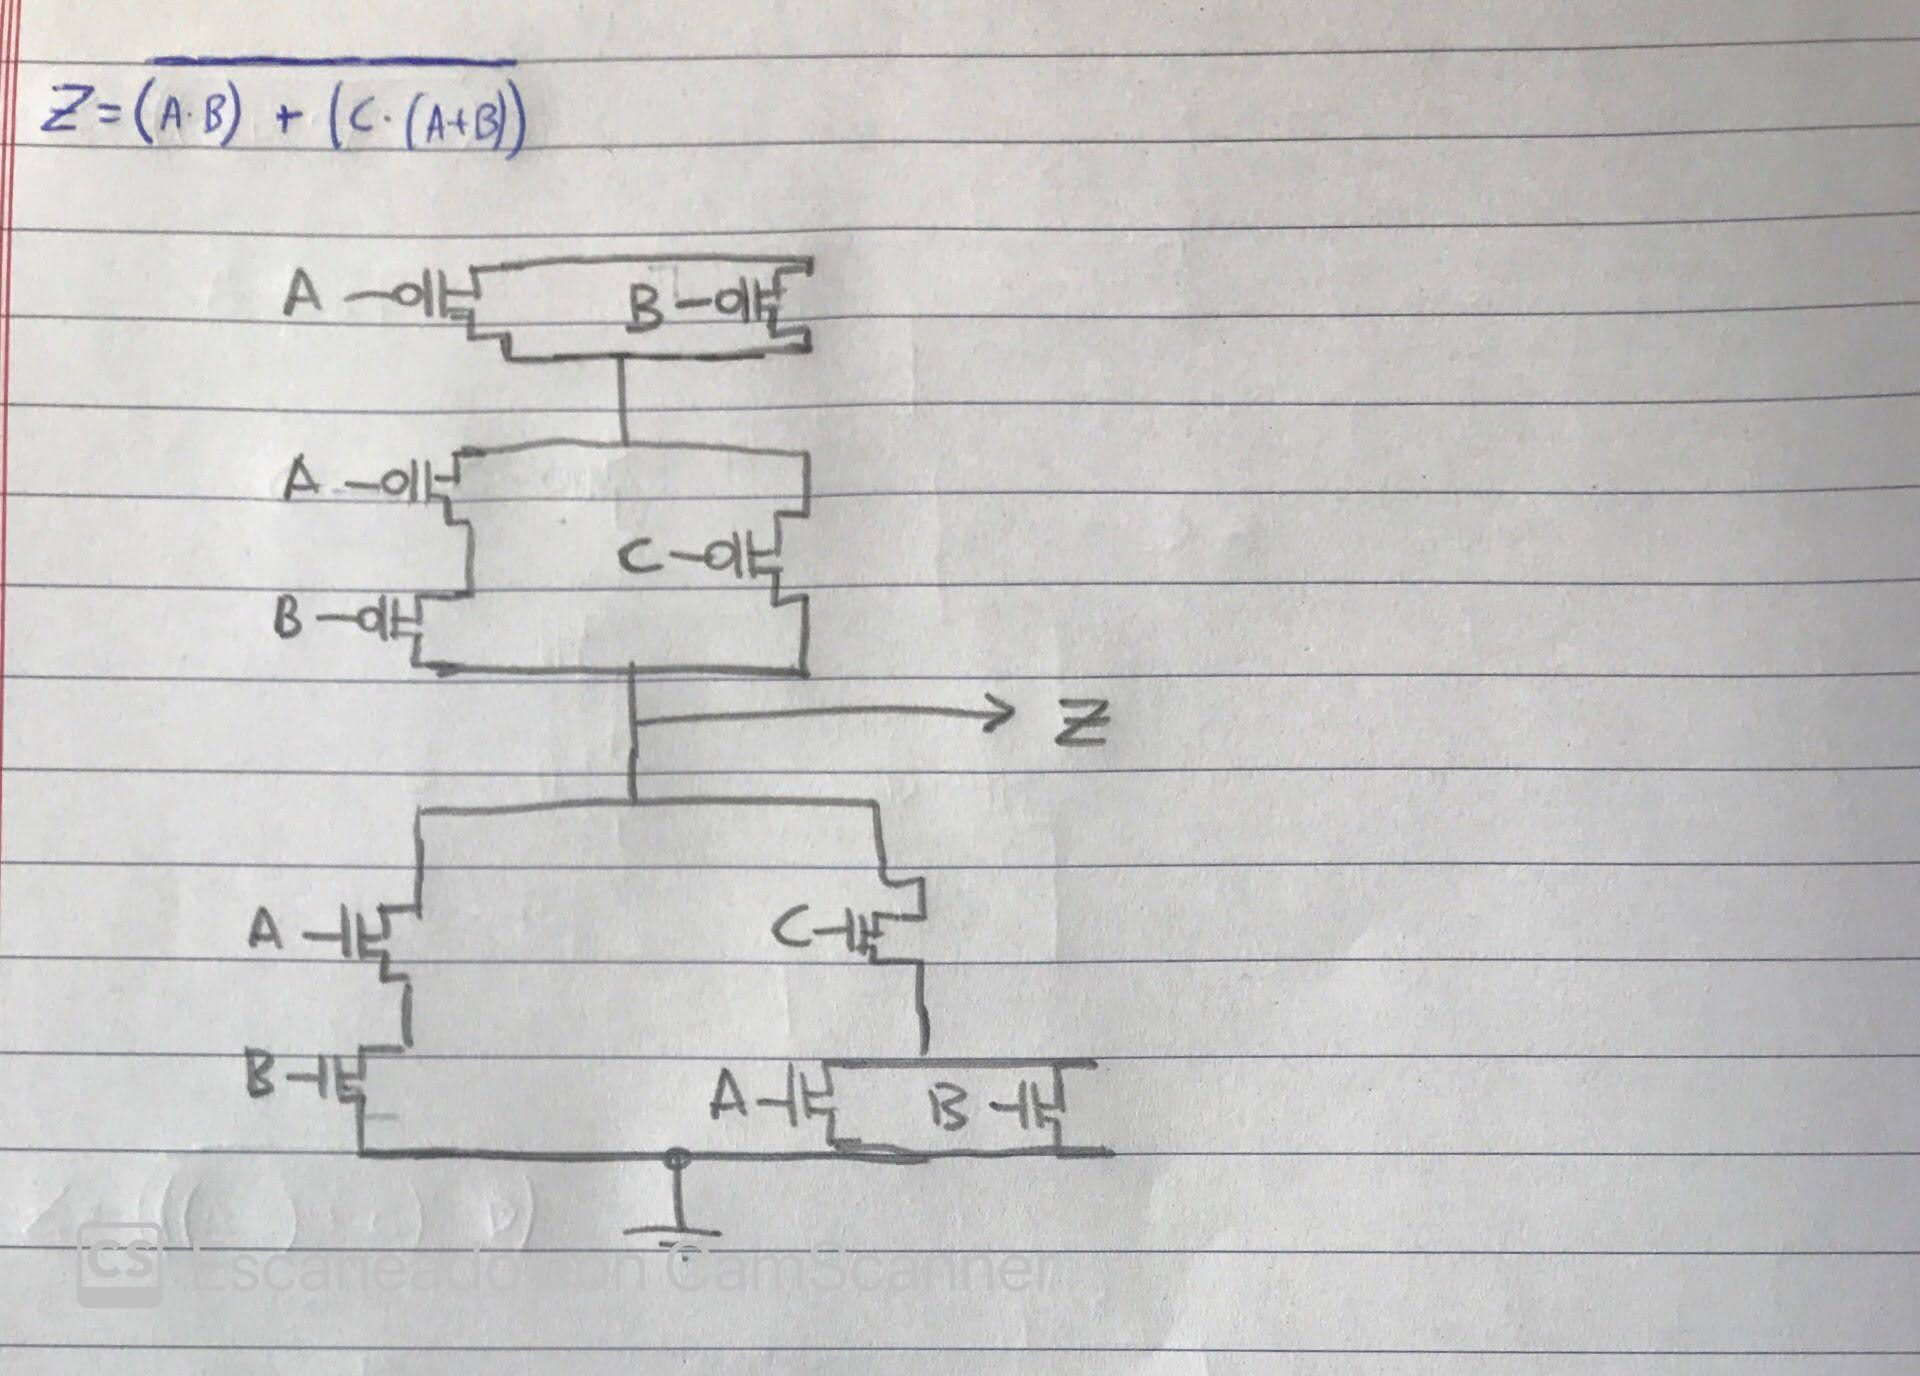 Z = (A·B) + (C·(A+B))
A B
A
C
B
Z
A C
B A B
CS Escaneado con CamScanner